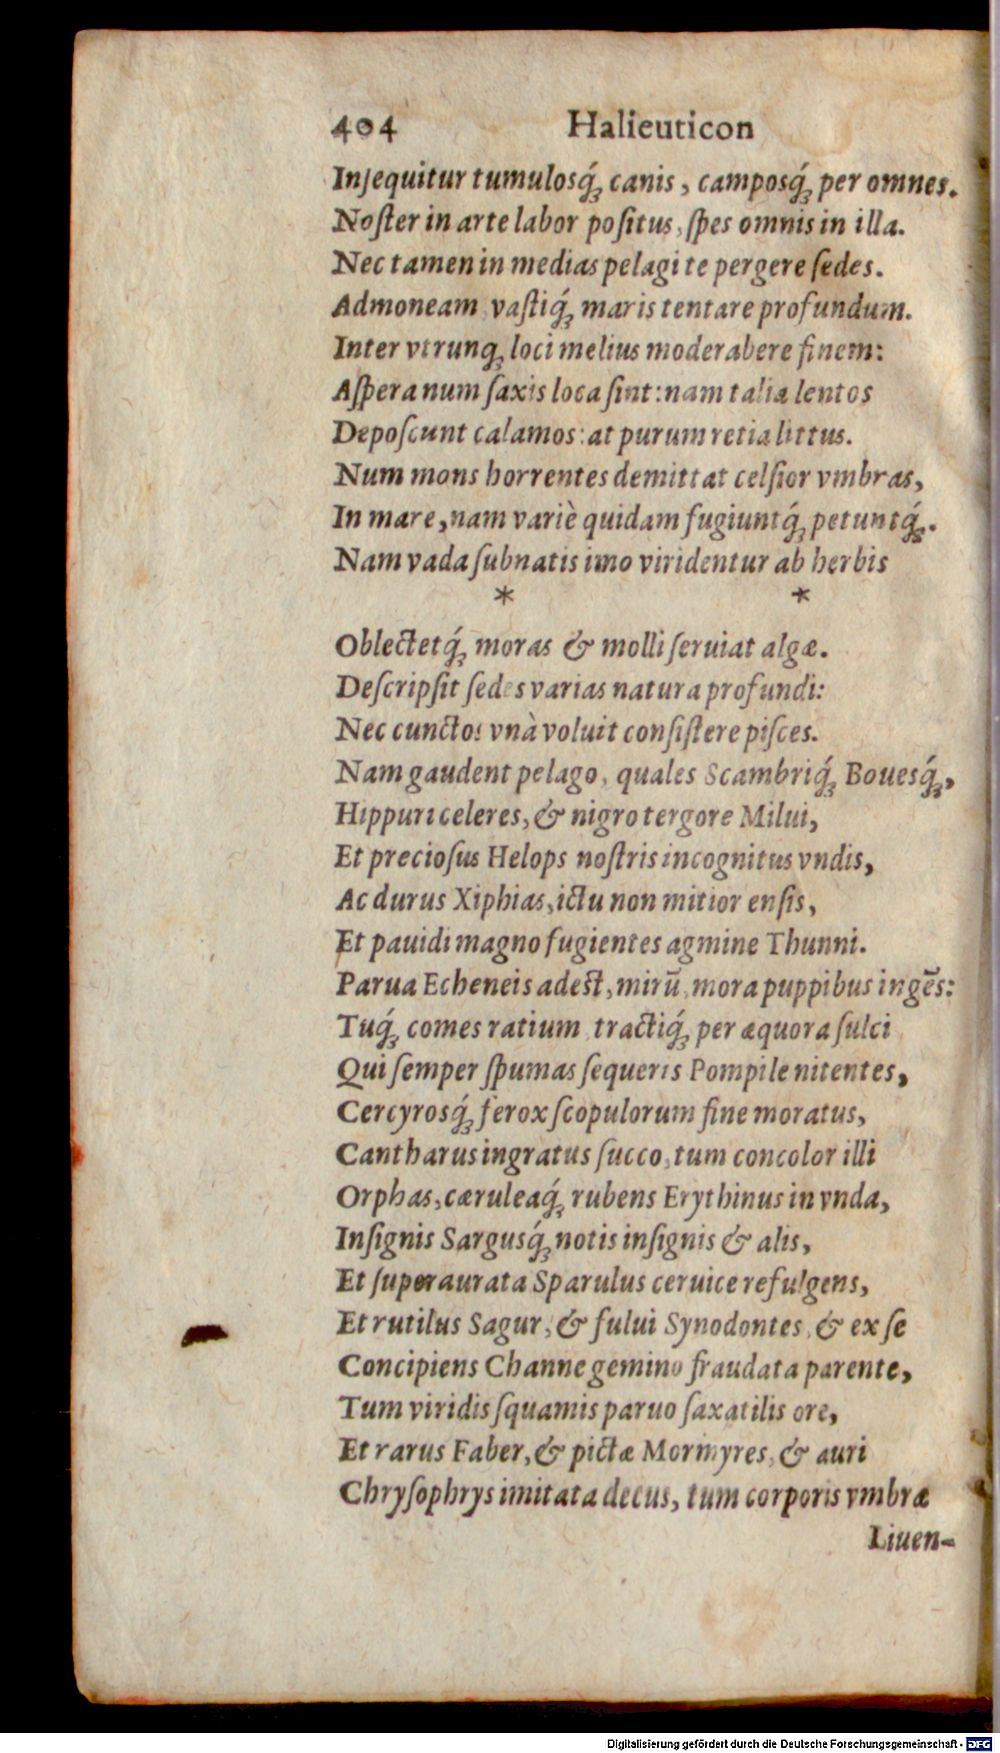 404 Halieuticon
Inſequitur tumulosq́ꝫ canis, camposq́ꝫ per omnes.
Noſter in arte labor poſitus, ſpes omnis in illa.
Nec tamen in medias pelagi te pergere ſedes.
Admoneam vaſtiq́ꝫ maris tentare profundum.
Inter vtrunqꝫ loci melius moderabere finem:
Aſpera num ſaxis loca ſint: nam talia lentos
Depoſcunt calamos: at purum retia littus.
Num mons horrentes demittat celſior vmbras,
In mare, nam variè quidam fugiuntq́ꝫ petuntq́ꝫ.
Nam vada ſubnatis imo viridentur ab herbis
* *
Oblectetq́ꝫ moras & molli ſeruiat algæ.
Deſcripſit ſedes varias natura profundi:
Nec cunctos vnà voluit conſiſtere piſces.
Nam gaudent pelago, quales Scambriq́ꝫ Bouesq́ꝫ,
Hippuri celeres, & nigro tergore Milui,
Et precioſus Helops noſtris incognitus vndis,
Ac durus Xiphias, ictu non mitior enſis,
Et pauidi magno fugientes agmine Thunni.
Parua Echeneis adeſt, mirū, mora puppibus ingēs:
Tuq́ꝫ comes ratium tractiq́ꝫ per æquora ſulci
Qui ſemper ſpumas ſequeris Pompile nitentes,
Cercyrosq́ꝫ ferox ſcopulorum fine moratus,
Cantharus ingratus ſucco, tum concolor illi
Orphas, cæruleaq́ꝫ rubens Erythinus in vnda,
Inſignis Sargusq́ꝫ notis inſignis & alis,
Et ſuper aurata Sparulus ceruice refulgens,
Et rutilus Sagur, & fului Synodontes, & ex ſe
Concipiens Channe gemino fraudata parente,
Tum viridis ſquamis paruo ſaxatilis ore,
Et rarus Faber, & pictæ Mormyres, & auri
Chryſophrys imitata decus, tum corporis vmbræ
Liuen-
Digitalisierung gefördert durch die Deutsche Forschungsgemeinschaft - DFG